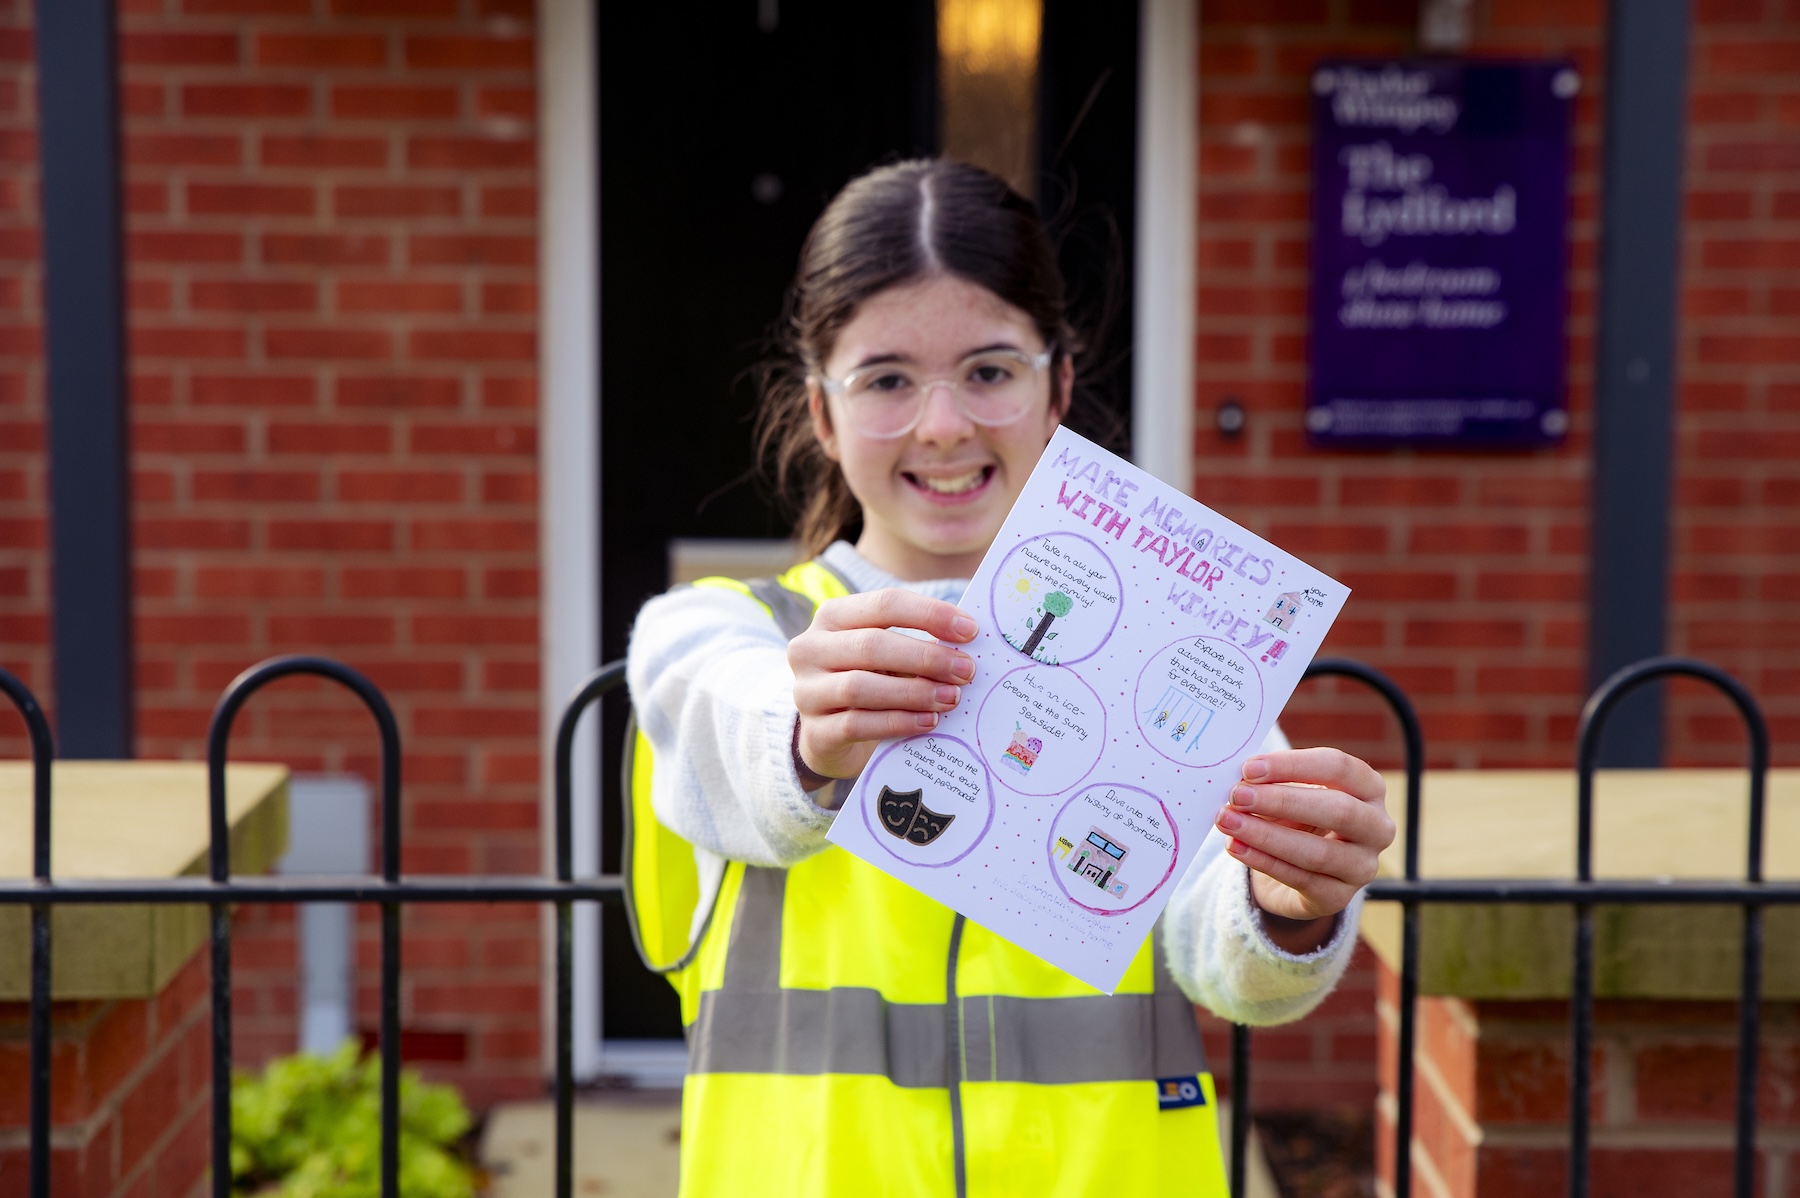 Taylor
Wimpey
The
Lydford
4 bedroom
show home
MAKE MEMORIES
WITH TAYLOR
WIMPEY!!
your
home
Take in all your
nature on lovely walks
with the family!
Explore the
adventure park
that has something
for everyone!!
Have an ice-
cream at the sunny
seaside!
Step into the
theatre and enjoy
a local performance
Dive into the
history of Shorncliffe!